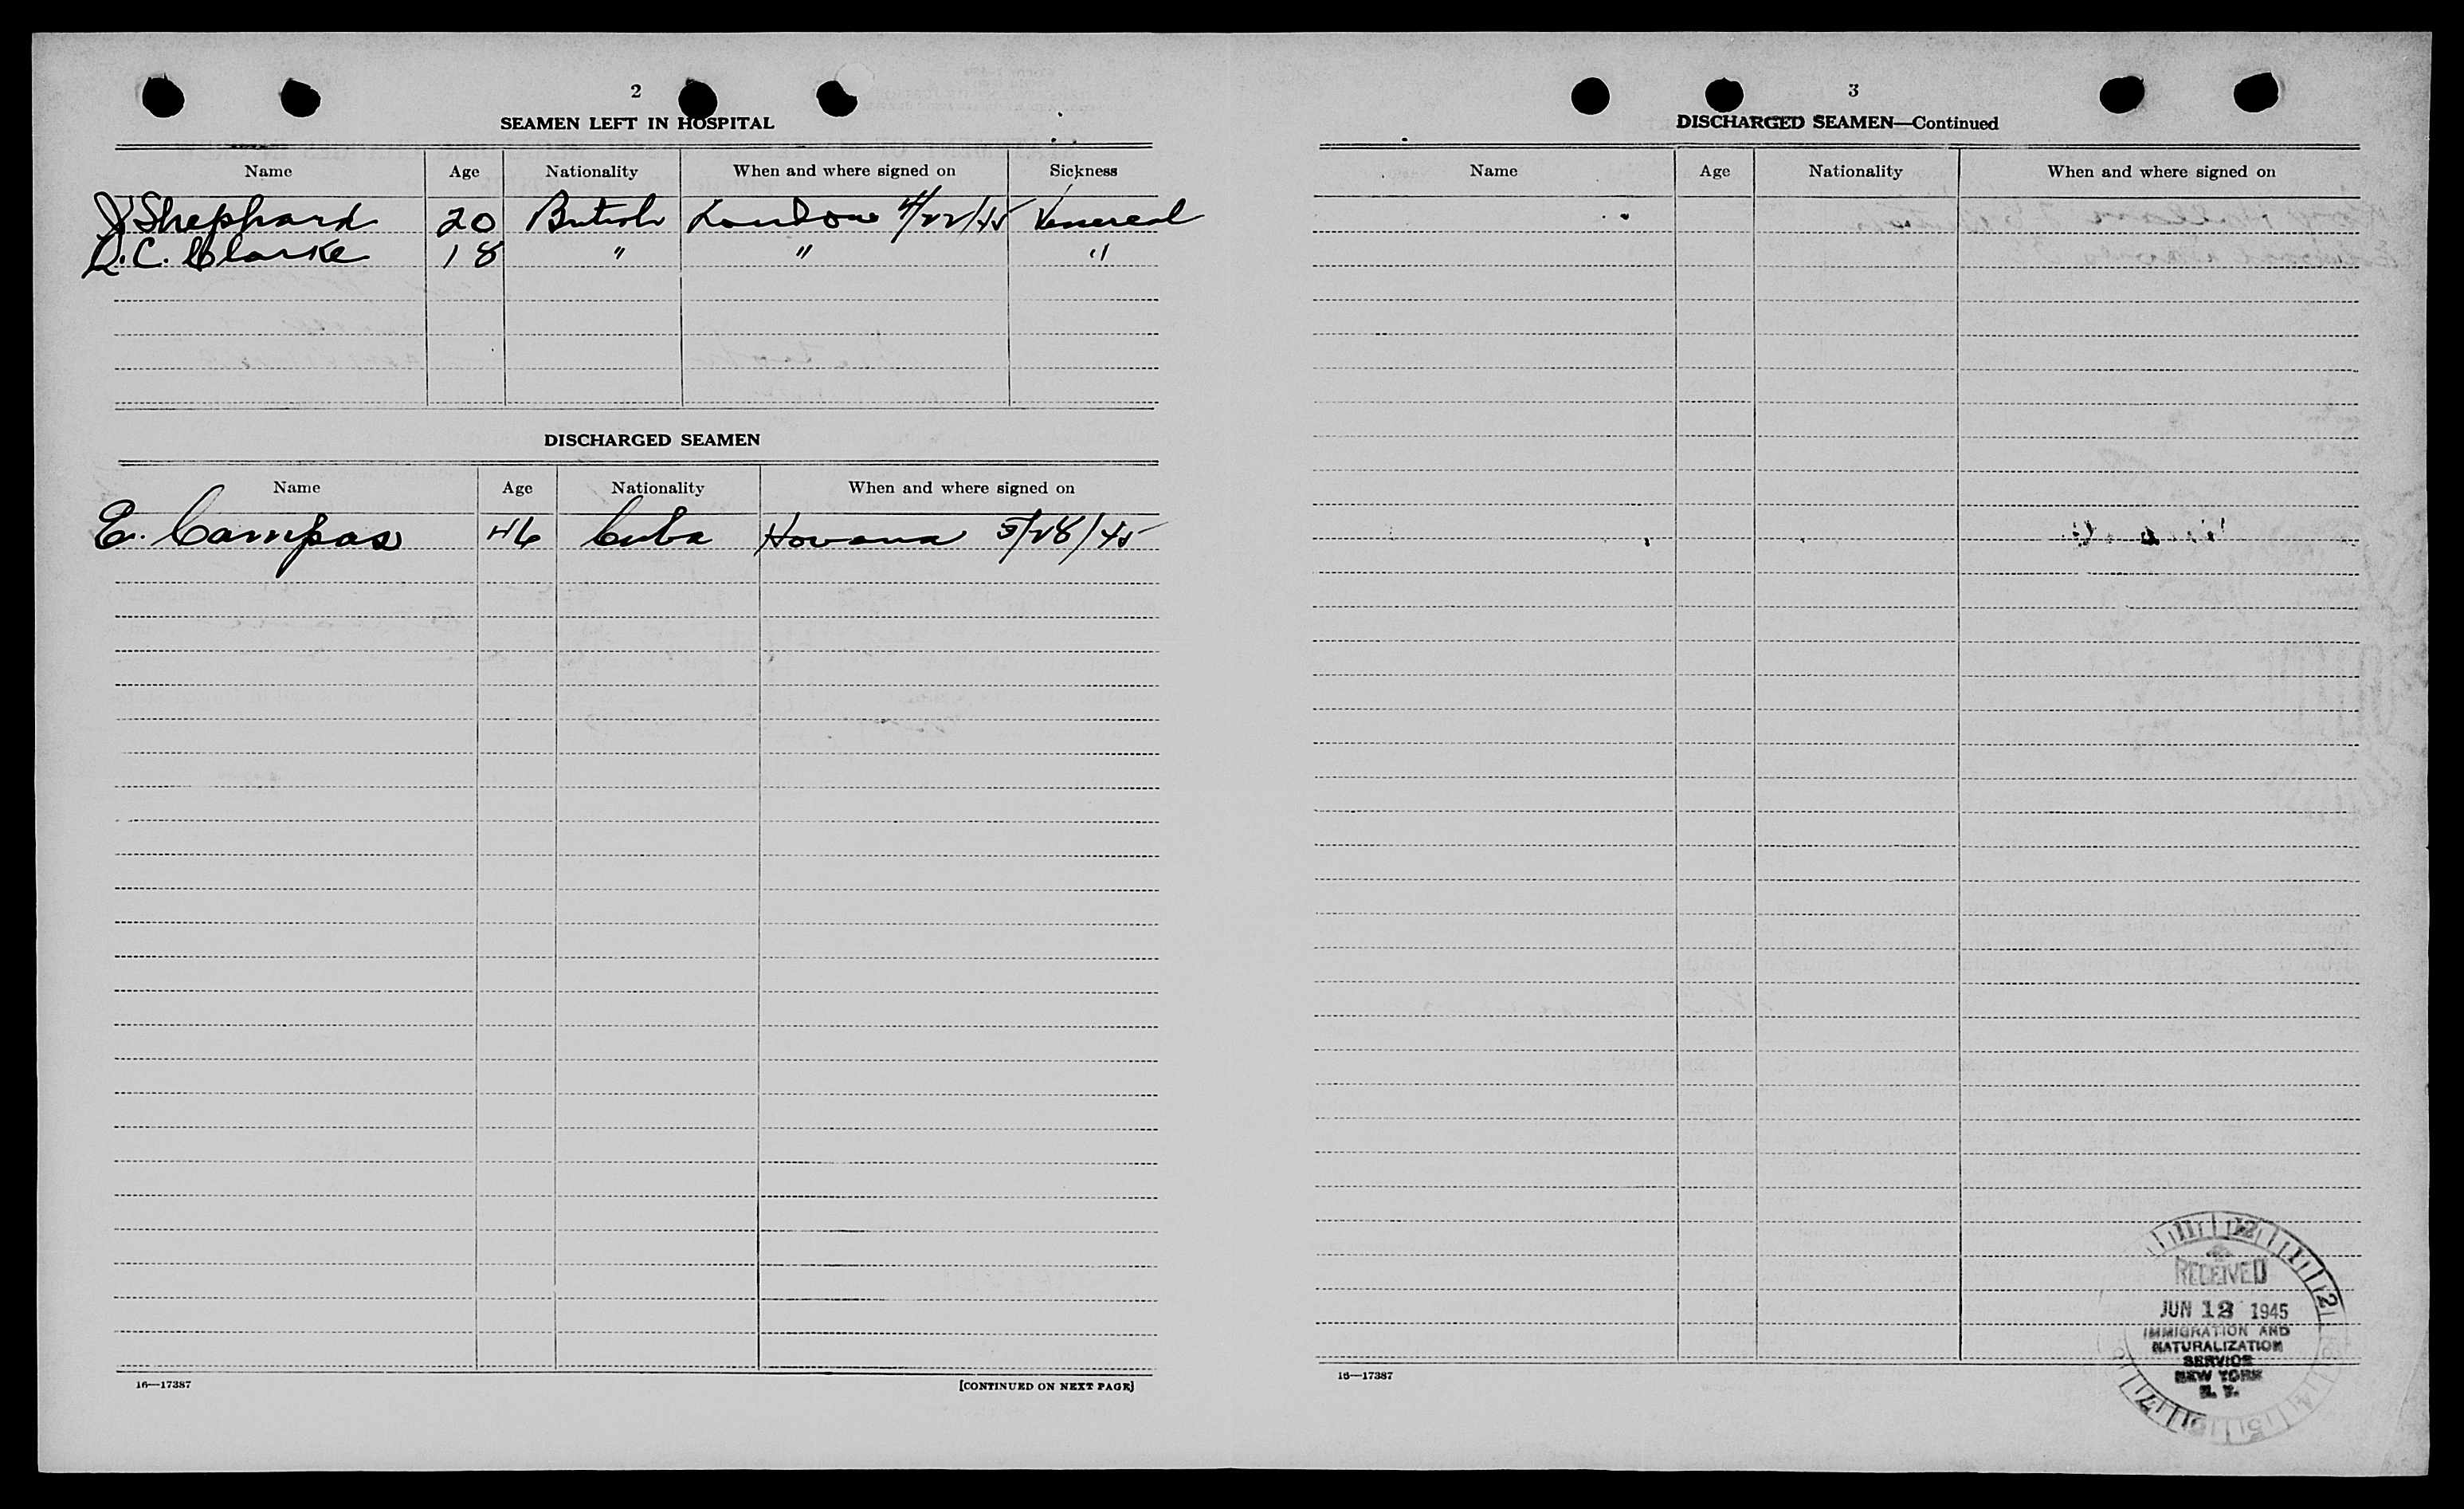 2
SEAMEN LEFT IN HOSPITAL
Name Age Nationality When and where signed on Sickness
J Sheppard 20 British London 4/22/45 Venereal
D.C. Clarke 18 " " "
DISCHARGED SEAMEN
Name Age Nationality When and where signed on
E. Campas 46 Cuba Havana 5/28/45
16—17387 [CONTINUED ON NEXT PAGE]
3
DISCHARGED SEAMEN—Continued
Name Age Nationality When and where signed on
11 12 1 2
RECEIVED
JUN 1945
IMMIGRATION AND
NATURALIZATION
SERVICE
NEW YORK
N. Y.
16—17387